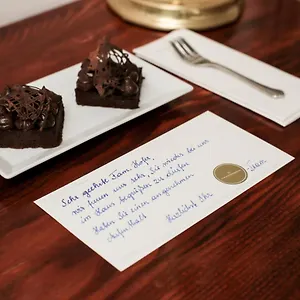 Sehr geehrte Fam. Hofer,
wir freuen uns sehr, Sie wieder bei uns
im Haus begrüßen zu dürfen.
Haben Sie einen angenehmen
Aufenthalt
Herzlichst Ihr
Team